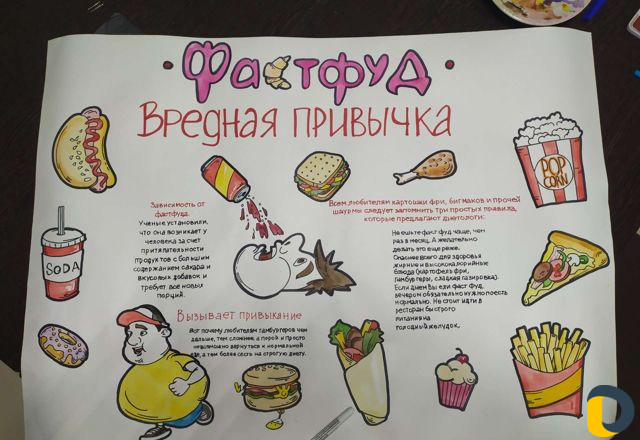 Фастфуд
Вредная привычка
Зависимость от
фастфуда.
Ученые установили,
что она возникает у
человека за счет
притягательности
продуктов с большим
содержанием сахара и
вкусовых добавок и
требует все новых
порций.
Всем любителям картошки фри, бигмаков и прочей
шаурмы следует запомнить три простых правила,
которые предлагают диетологи:
Не ешьте фаст фуд чаще, чем
раз в месяц. А желательно
делать это еще реже.
Опаснее всего для здоровья
жирные и высококалорийные
блюда (картофель фри,
гамбургеры, сладкая газировка).
Если днем Вы ели фаст фуд,
вечером обязательно нужно поесть
нормально. Не стоит идти в
ресторан быстрого
питания на
голодный желудок.
POP
CORN
SODA
Вызывает привыкание
Вот почему любителям гамбургеров чем
дальше, тем сложнее, а порой и просто
невозможно вернуться к нормальной
еде, а тем более сесть на строгую диету.